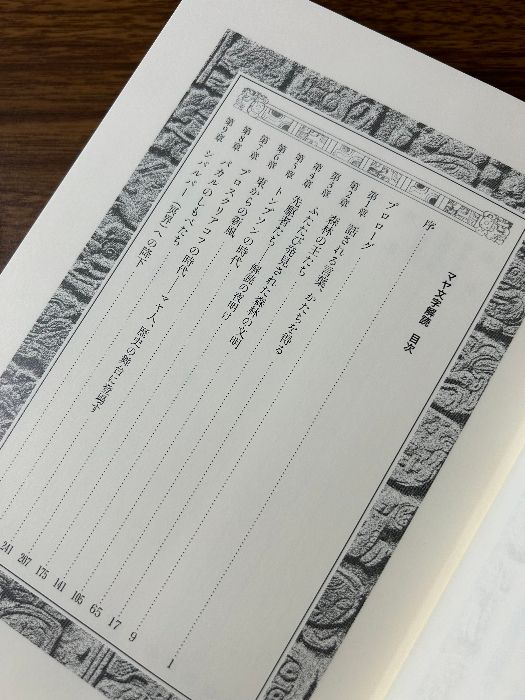 マヤ文字解読 目次
序 1
プロローグ 9
第1章 話される言葉、かたちを得る 17
第2章 森林の王たち 65
第3章 ふたたび発見された森林の文明 105
第4章 先駆者たち——解読の夜明け 141
第5章 トンプソンの時代 175
第6章 東からの新風 207
第7章 プロスクリアコフの時代——マヤ人、歴史の舞台に登場す 241
第8章 パカルのしもべたち
第9章 シバルバー〈冥界〉への降下